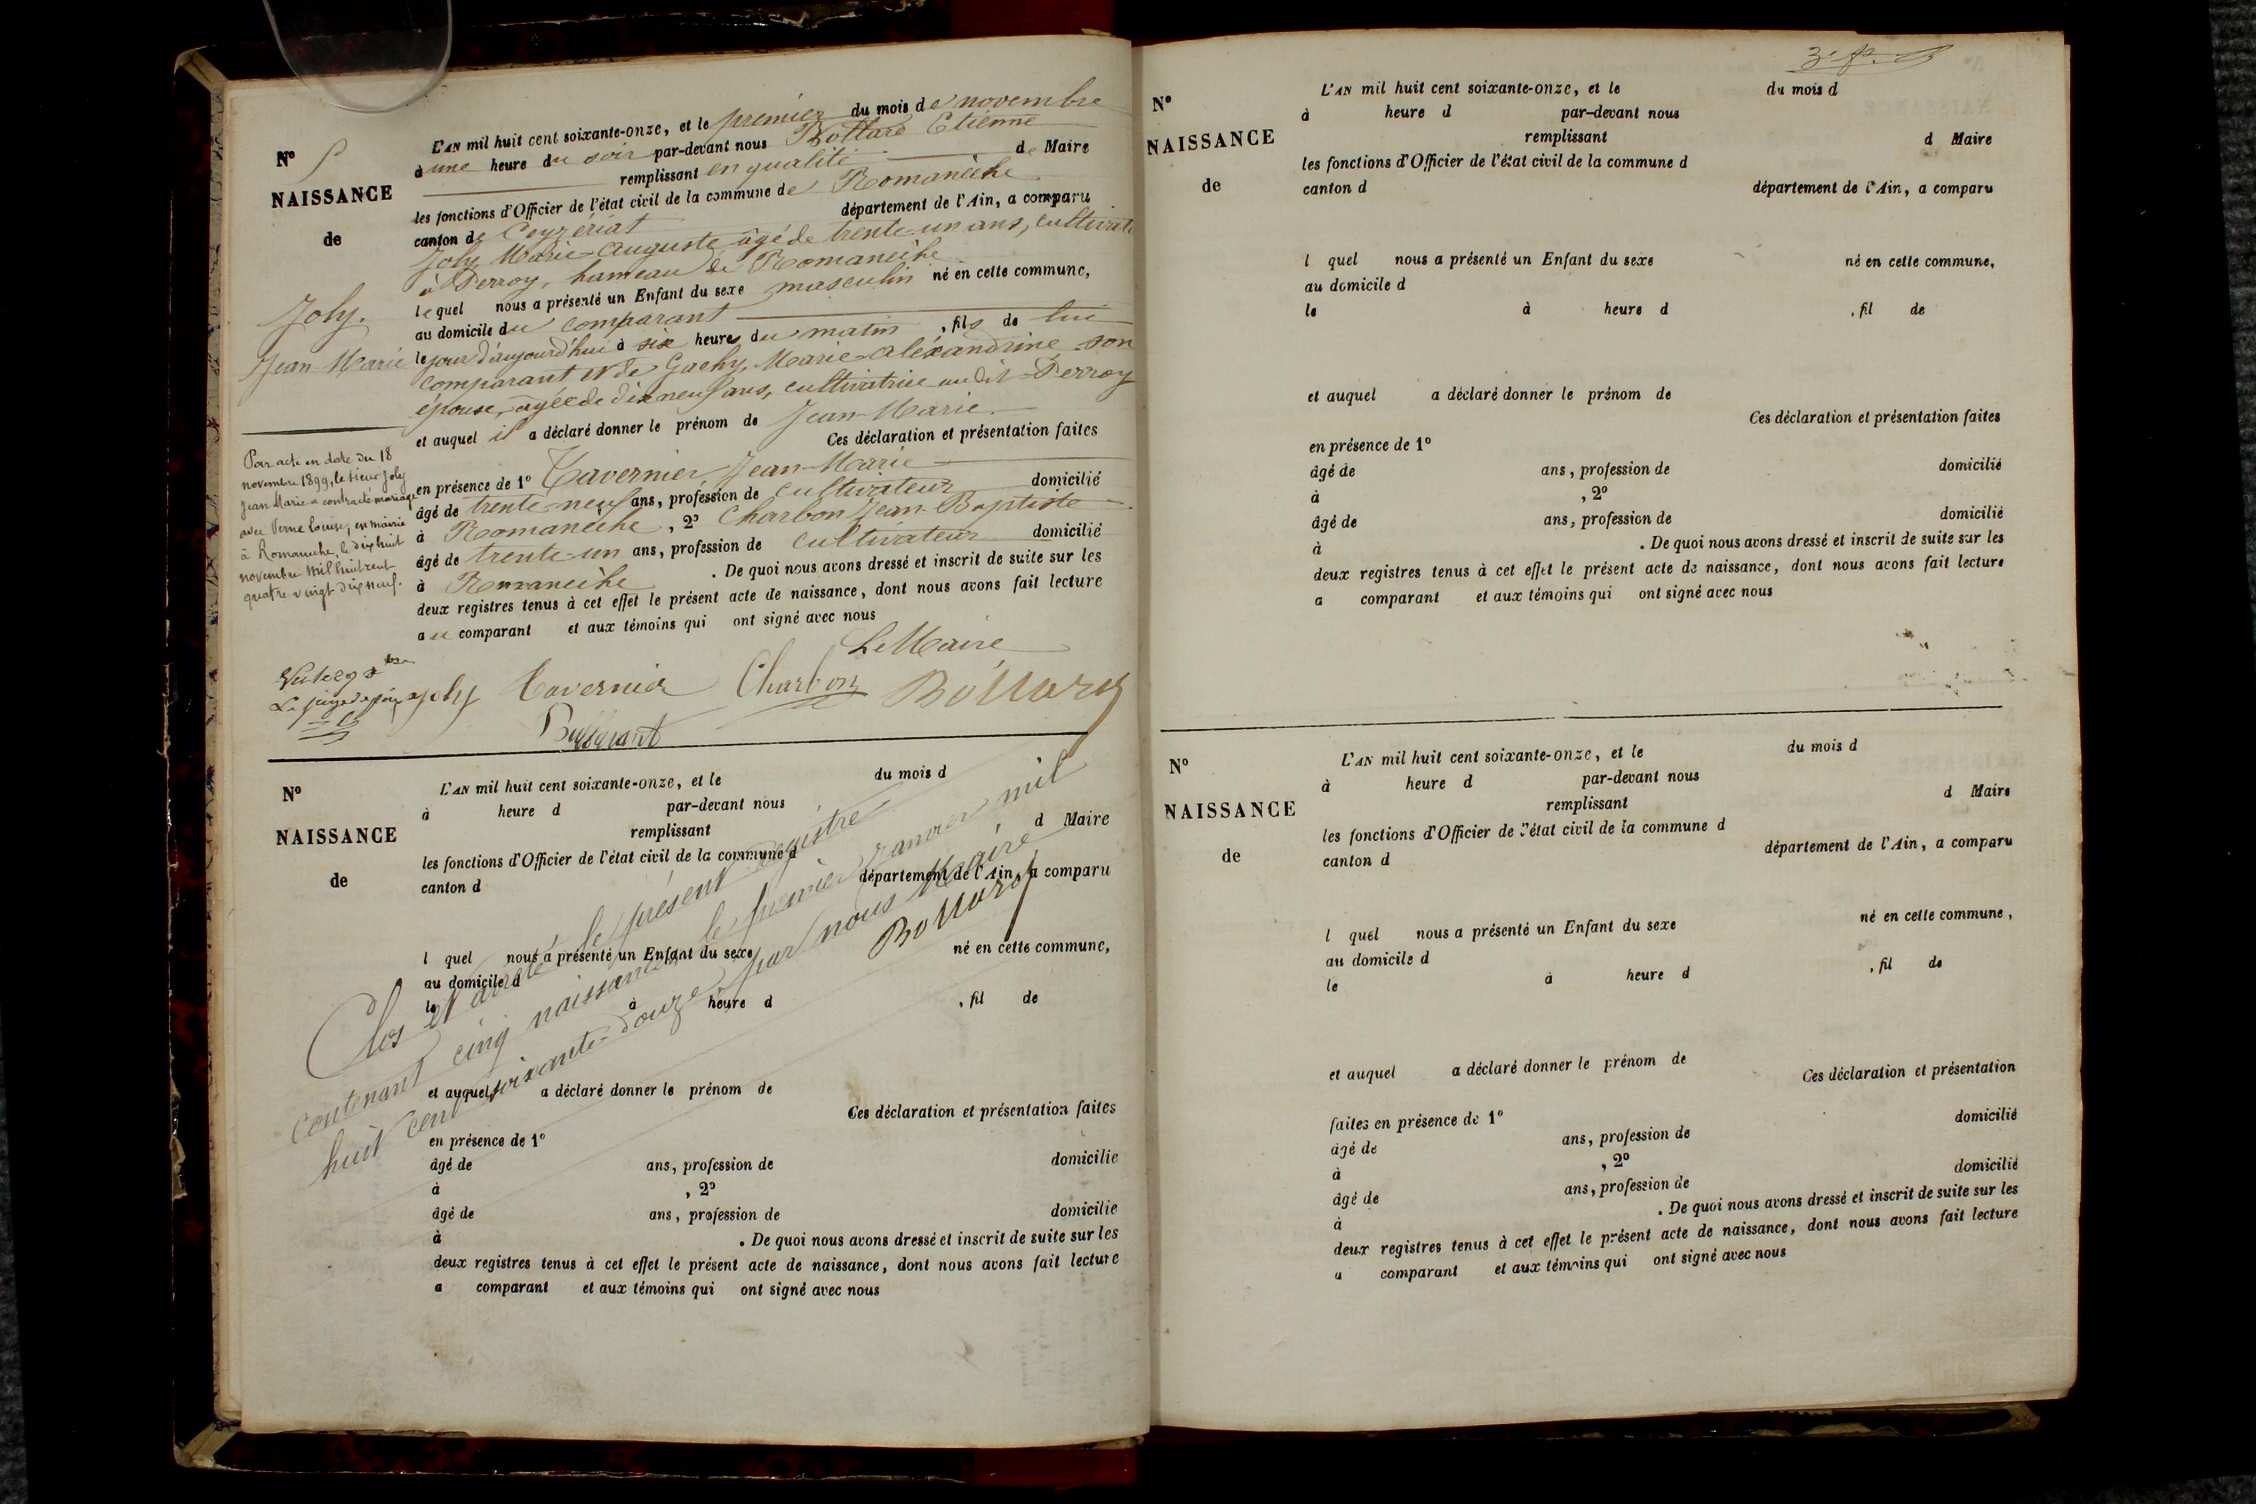 N° 5
NAISSANCE
de
Joly.
Jean-Marie
L'AN mil huit cent soixante-onze, et le premier du mois de novembre
à une heure du soir par-devant nous Bottard Etienne
remplissant en qualité de Maire
les fonctions d'Officier de l'état civil de la commune de Romanèche
canton de Ceyzériat département de l'Ain, a comparu
Joly Marie-Auguste âgé de trente-un ans,
à Perroy, hameau de Romanèche
lequel nous a présenté un Enfant du sexe masculin né en cette commune,
au domicile du comparant
le jour d'aujourd'hui à six heures du matin, fils de lui
comparant et de Gachy, Marie-Aléxandrine son
épouse, âgée de dix neuf ans, cultivatrice au dit Perroy
et auquel il a déclaré donner le prénom de Jean-Marie.
Ces déclaration et présentation faites
en présence de 1° Tavernier Jean-Marie
âgé de trente-neuf ans, profession de cultivateur domicilié
à Romanèche, 2° Charbon Jean-Baptiste
âgé de trente-un ans, profession de cultivateur domicilié
à Romanèche. De quoi nous avons dressé et inscrit de suite sur les
deux registres tenus à cet effet le présent acte de naissance, dont nous avons fait lecture
au comparant et aux témoins qui ont signé avec nous
Le Maire
Joly Tavernier Charbon Bottard
Par acte en date du 18
novembre 1899, le sieur Joly
Jean Marie a contracté mariage
avec Verne Louise, en mairie
à Romanèche, le dix huit
novembre mil huit cent
quatre vingt dix neuf.
Le juge de paix
N°
NAISSANCE
de
L'AN mil huit cent soixante-onze, et le du mois d
à heure d par-devant nous
remplissant d Maire
les fonctions d'Officier de l'état civil de la commune d
canton d département de l'Ain, a comparu
l quel nous a présenté un Enfant du sexe né en cette commune,
au domicile d
le à heure d , fil de
et auquel a déclaré donner le prénom de
Ces déclaration et présentation faites
en présence de 1°
âgé de ans, profession de domicilié
à , 2°
âgé de ans, profession de domicilié
à . De quoi nous avons dressé et inscrit de suite sur les
deux registres tenus à cet effet le présent acte de naissance, dont nous avons fait lecture
a comparant et aux témoins qui ont signé avec nous
Clos et arrêté le présent registre
contenant cinq naissances, le premier janvier mil
huit cent soixante-douze, par nous Maire
Bottard
N°
NAISSANCE
de
L'AN mil huit cent soixante-onze, et le du mois d
à heure d par-devant nous
remplissant d Maire
les fonctions d'Officier de l'état civil de la commune d
canton d département de l'Ain, a comparu
l quel nous a présenté un Enfant du sexe né en cette commune,
au domicile d
le à heure d , fil de
et auquel a déclaré donner le prénom de
Ces déclaration et présentation faites
en présence de 1°
âgé de ans, profession de domicilié
à , 2°
âgé de ans, profession de domicilié
à . De quoi nous avons dressé et inscrit de suite sur les
deux registres tenus à cet effet le présent acte de naissance, dont nous avons fait lecture
a comparant et aux témoins qui ont signé avec nous
N°
NAISSANCE
de
L'AN mil huit cent soixante-onze, et le du mois d
à heure d par-devant nous
remplissant d Maire
les fonctions d'Officier de l'état civil de la commune d
canton d département de l'Ain, a comparu
l quel nous a présenté un Enfant du sexe né en cette commune,
au domicile d
le à heure d , fil de
et auquel a déclaré donner le prénom de
Ces déclaration et présentation
faites en présence de 1° domicilié
âgé de ans, profession de
à , 2° domicilié
âgé de ans, profession de
à . De quoi nous avons dressé et inscrit de suite sur les
deux registres tenus à cet effet le présent acte de naissance, dont nous avons fait lecture
a comparant et aux témoins qui ont signé avec nous